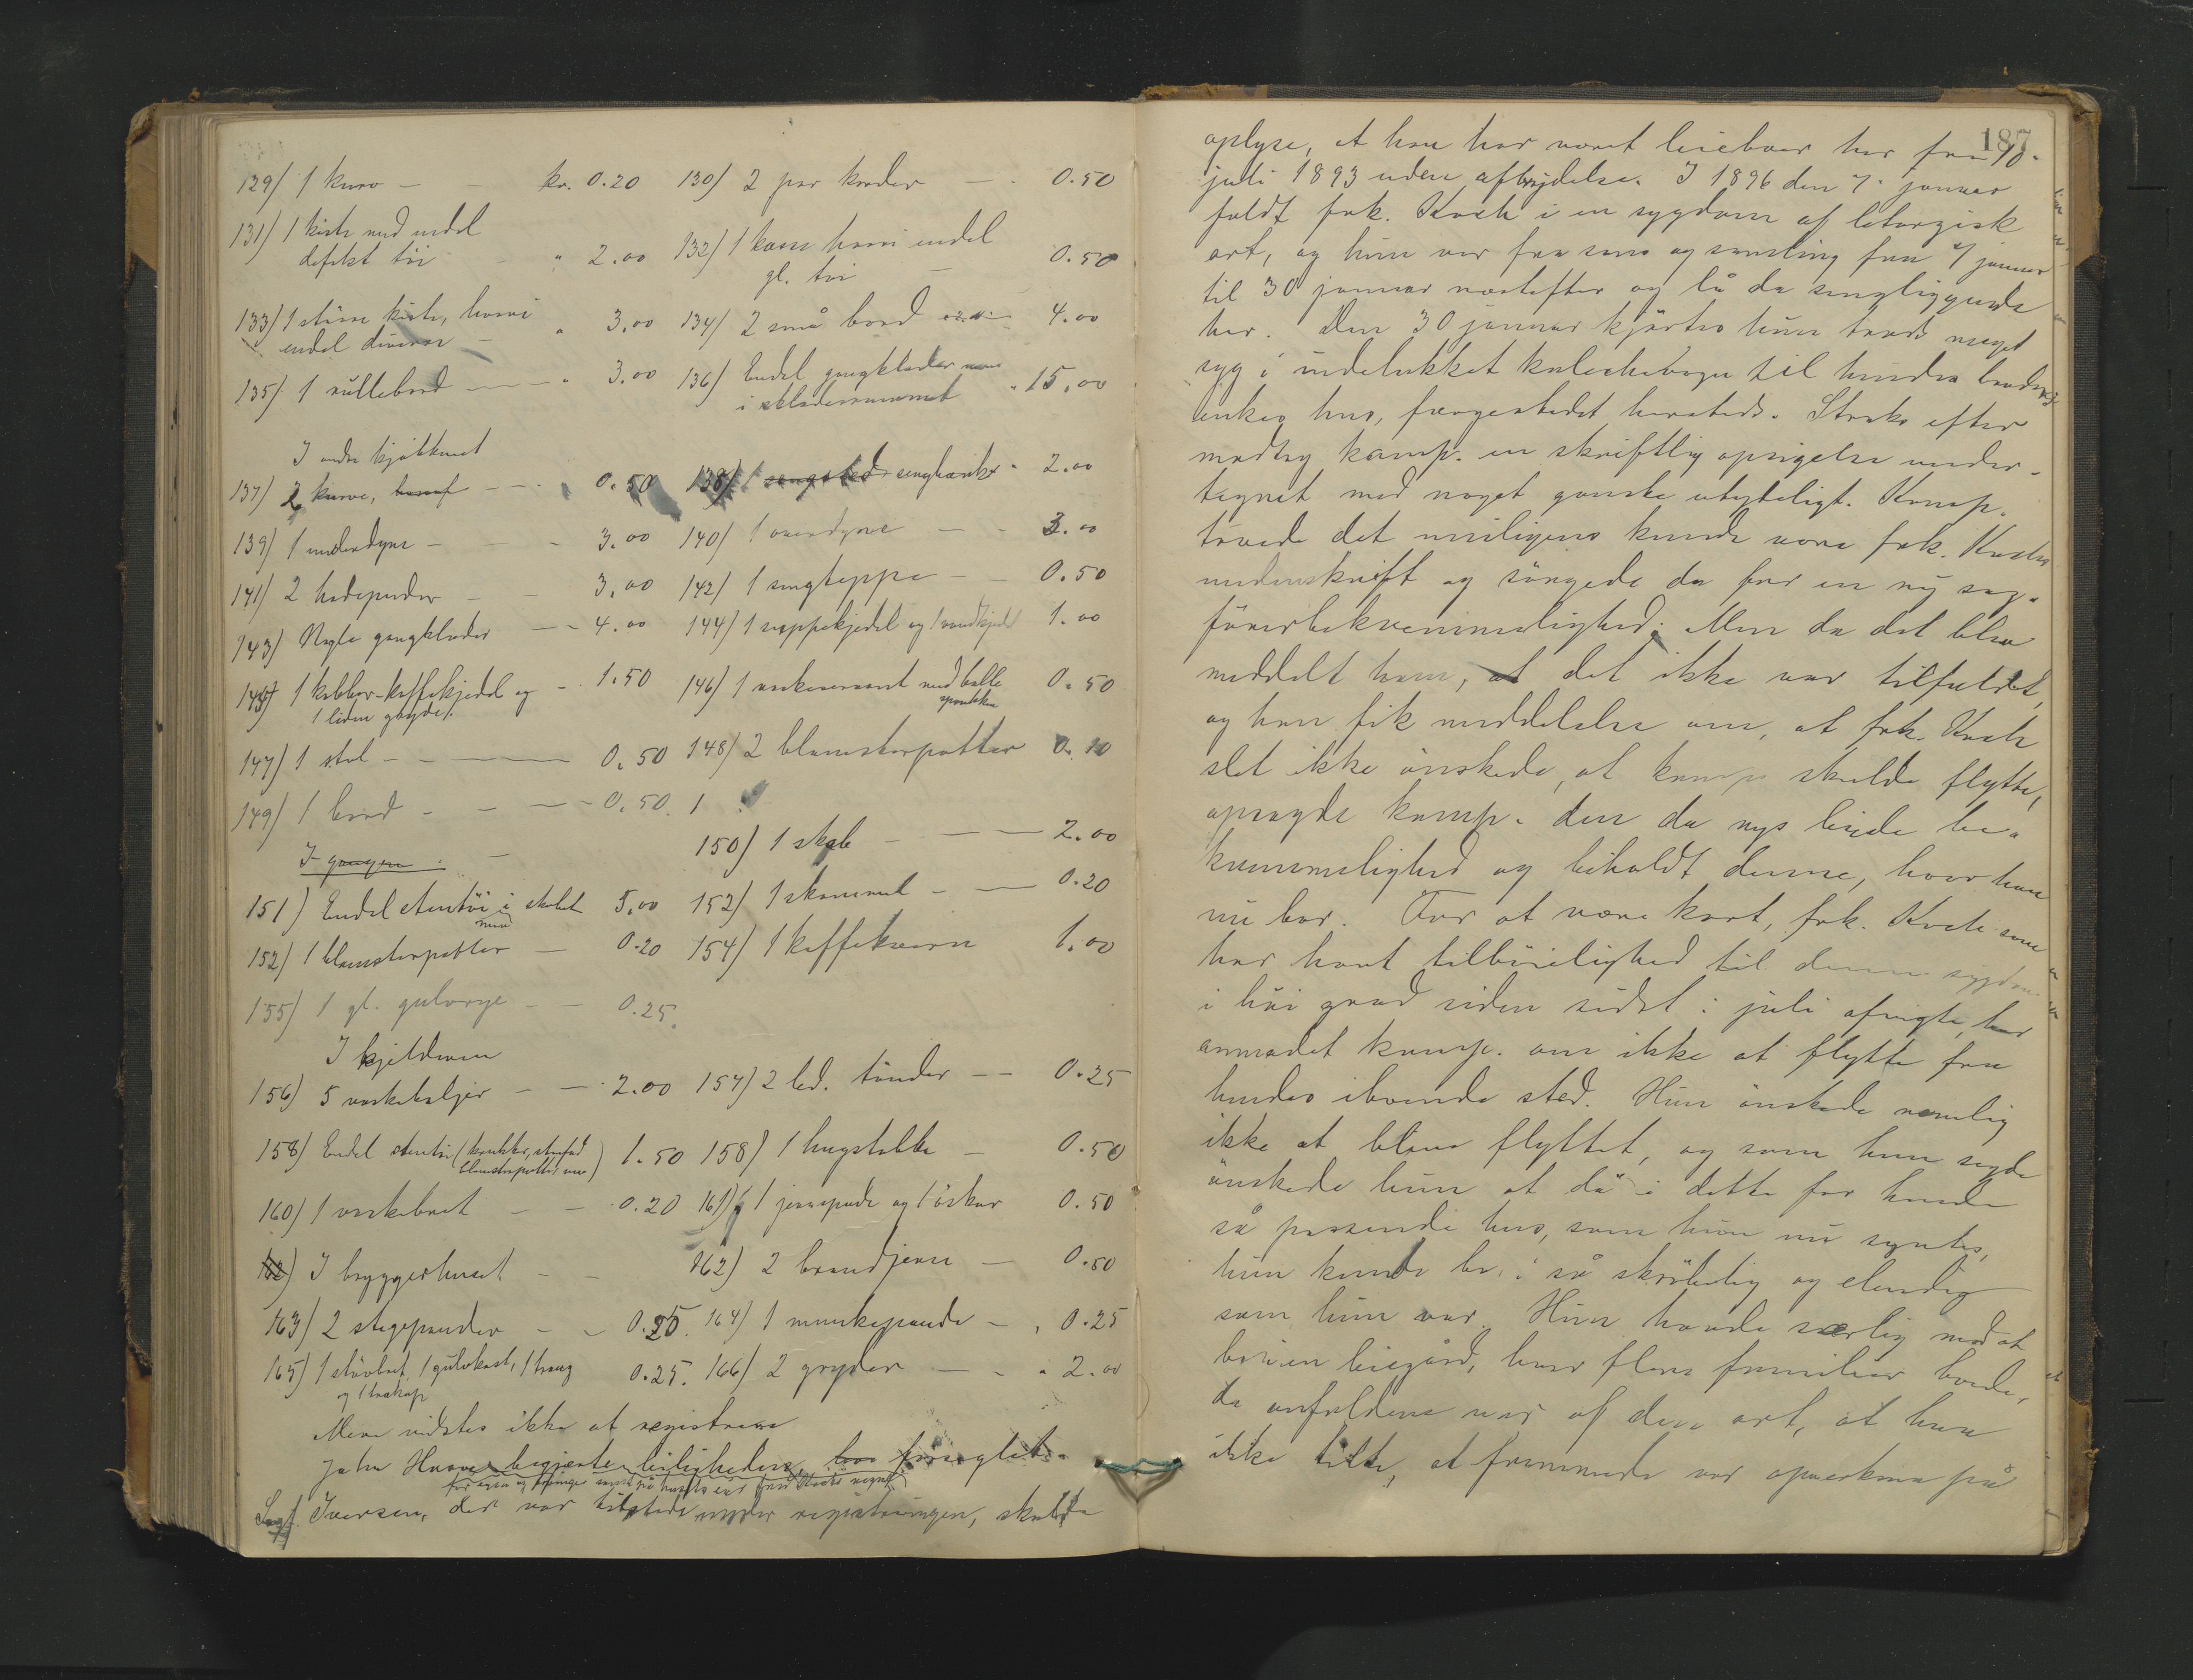 129) 1 kurv - - kr. 0.20 130) 2 par karder - - 0.50
131) 1 kiste med endel
defekt töi " 2.00 132) 1 kasse hvori endel
gl. töi - 0.50
133) 1 större kiste, hvori
endel diverse - " 3.00 134) 2 små bord 4.00
135) 1 rullebord - " 3.00 136) Endel gangklæder
i klæderummet " 15.00
I andre kjökkenet
137) 2 kurve, - 0.50 138) 1 sengsted sengbænk " 2.00
139) 1 underdyne - - - 3.00 140) 1 overdyne - - 3.00
141) 2 hodeputer - - 3.00 142) 1 sengteppe - - 0.50
143) Nogle gangklæder - - 4.00 144) 1 suppekjedel og 1 vandkjedel 1.00
145) 1 kobber-kaffekjedel og - 1.50 146) 1 vaskeservant med balle 0.50
1 liden gryde.
147) 1 stol - - - 0.50 148) 2 blomsterpotter 0.10
149) 1 bord - - - 0.50. 1
I gangen: - 150) 1 skab - - 2.00
151) Endel stentöi i skabet 5.00 152) 1 skammel - - 0.20
152) 1 blomsterpotter - 0.20 154) 1 kaffekværn 1.00
155) 1 gl. gulvrye - - 0.25.
I kjelderen
156) 5 vaskebaljer - - 2.00 157) 2 led. tönder - - 0.25
158) Endel stentöi (krukker, stenfad 1.50 158) 1 hugstabbe - 0.50
blomsterpotter)
160) 1 vaskebret - - 0.20 161) 1 jernspade og 1 öskar 0.50
162) I bryggerhuset - - 162) 2 brandjern - 0.50
163) 2 stegepander - - 0.50. 164) 1 munkepande - " 0.25
165) 1 gulvkost, 1 0.25. 166) 2 gryder - - " 2.00
og
Mere vidstes ikke at registrere
John begjærte leiligheden forseglet.
Sagf. Iversen, der var tilstede under registreringen, skulde
187
oplyse, at han har været leieboer her fra 10.
juli 1893 uden afbrydelse. I 1896 den 7. januar
faldt frk. Koch i en sygdom af letargisk
art, og hun var fra sans og samling fra 7 januar
til 30 januar næstefter og lå da sengliggende
her. Den 30 januar kjörtes hun trods meget
syg i indelukket kalechevogn til hendes broders
enkes hus, færgestedet hersteds. Straks efter
modtog komp. en skriftlig opsigelse under-
tegnet med noget ganske utydeligt. Komp.
troede det muligens kunde være frk. Kochs
underskrift og sörgede da for en ny sag-
förerbekvemmelighed. Men da det blev
meddelt ham, at det ikke var tilfældet,
og han fik meddelelse om, at frk. Koch
slet ikke önskede, at komp. skulde flytte,
opsagde komp. den da nys leiede be-
kvemmelighed og beholdt denne, hvor han
nu bor. For at være kort, frk. Koch som
har havt tilböielighed til denne sygdom
i höi grad siden sidst i juli afvigte, har
anmodet komp. om ikke at flytte fra
hendes iboende sted. Hun önskede nemlig
ikke at blive flyttet, og som hun sagde
önskede hun at dö i dette for hende
så passende hus, som hun nu syntes,
hun kunde bo i så skröbelig og elendig
som hun var. Hun havde særlig mod at
bo i en leiegård, hvor flere familier boede,
da anfaldene var af den art, at hun
ikke likte, at fremmede var opmerksom på